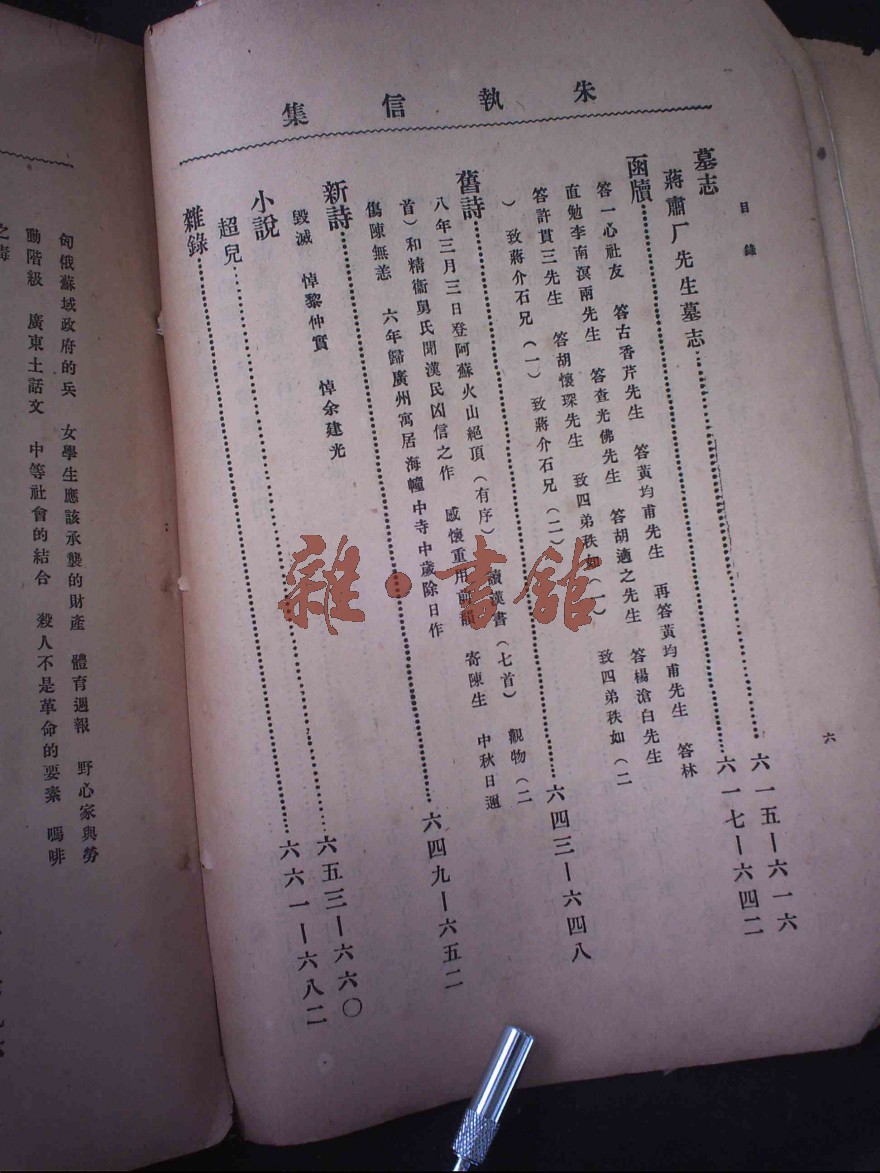 朱執信集
目錄
六
墓志
蔣肅厂先生墓志……六一五—六一六
函牘……六一七—六四二
答一心社友 答古香芹先生 答黃均甫先生 再答黃均甫先生 答林
直勉李南溟兩先生 答查光佛先生 答胡適之先生 答楊滄白先生
答許貫三先生 答胡懷琛先生 致四弟秩如(一) 致四弟秩如(二
) 致蔣介石兄(一) 致蔣介石兄(二)
舊詩……六四三—六四八
八年三月三日登阿蘇火山絕頂(有序) 讀漢書(七首) 觀物(二
首)和精衞舅氏聞漢民凶信之作 感懷重用前韻 寄陳生 中秋日遇
傷陳無恙 六年歸廣州寓居海幢中寺中歲除日作
新詩……六四九—六五二
毀滅 悼黎仲實 悼余建光
小說
超兒……六五三—六六〇
雜錄……六六一—六八二
匈俄蘇域政府的兵 女學生應該承襲的財產 體育週報 野心家與勞
動階級 廣東土話文 中等社會的結合 殺人不是革命的要素 嗎啡
之毒
雜·書館